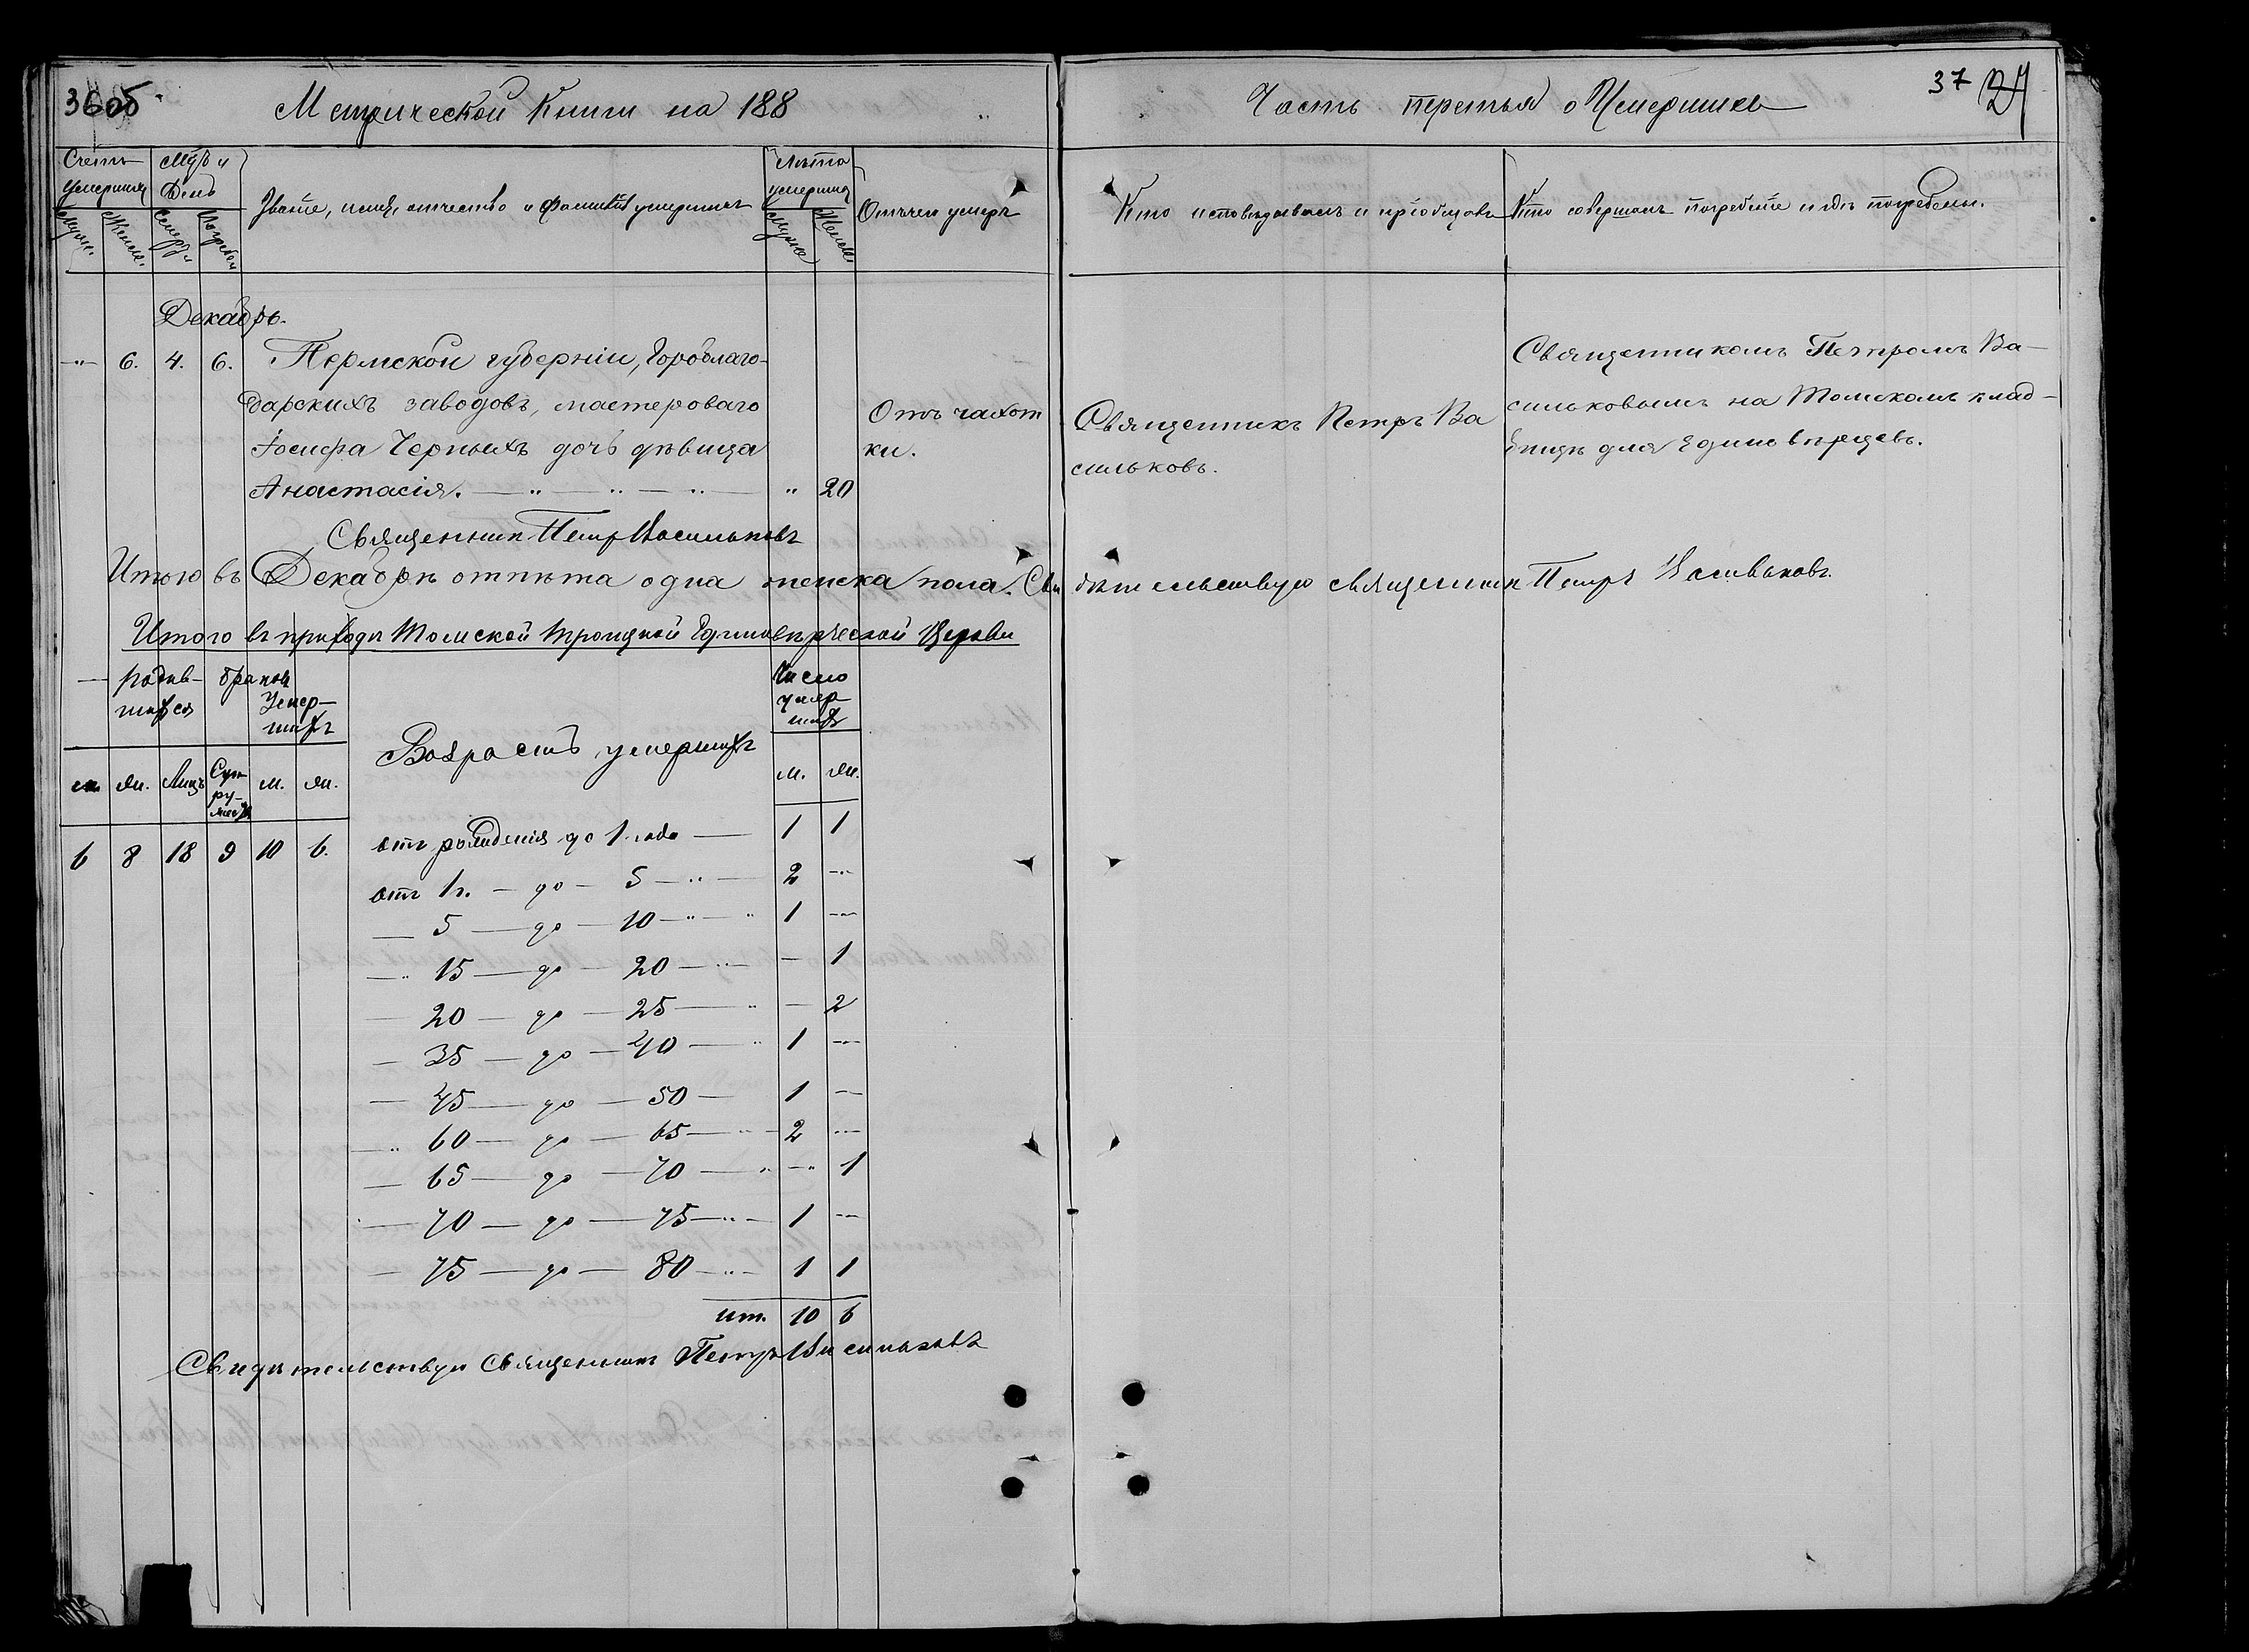 36об
Метрической Книги на 188
Часть третья о Умерших
37
27
Счетъ умерших
Мцъ и День
Званіе, имя, отчество и фамилія умерших
Лѣта умерших
Отъ чего умеръ
Кто исповѣдывалъ и пріобщалъ
Кто совершалъ погребеніе и гдѣ погребены.
Муж.
Женс.
Смерти
Погребен
Мужс
Женс.
Декабрь.
-"- 6. 4. 6. Пермской губерніи, Гороблаго-
датскихъ заводовъ, мастероваго
Іосифа Черныхъ дочь дѣвица
Анастасія. — " — " — " — " 20
Отъ чахот
ки.
Священникъ Петръ Ва
сильковъ.
Священникомъ Петромъ Ва-
сильковымъ на Томскомъ клад-
бищѣ для Единовѣрцевъ.
Священник Петръ Васильковъ
Итого въ Декабрѣ отпѣта одна женска пола. Сви дѣтельствую священник Петръ Васильковъ.
Итого въ приходѣ Томской Троицкой Единовѣрческой Церкви
— родив-
шихся
браков
Умер-
шихъ
Возрастъ умершихъ
Число
умер-
шихъ
м. жн. Лицъ Суп
ру-
жест м. жн.
м. жн.
6 8 18 9 10 6.
отъ рожденія до 1. года — 1 1
отъ 1 г. — до — 5 — " — 2 -"-
— 5 — до — 10 — " — " 1 -"-
— " 15 — до — 20 — " — — 1
— 20 — до — 25 — " — 2
— 35 — до — 40 — " 1 -"-
— 45 — до — 50 — 1 —
— " 60 — до — 65 — " — 2 -"-
— 65 — до — 70 — " — " 1
— 70 — до — 75 — " — 1 -"-
— 75 — до — 80 — " — 1 1
ит. 10 6
Свидѣтельствую Священникъ Петръ Васильковъ